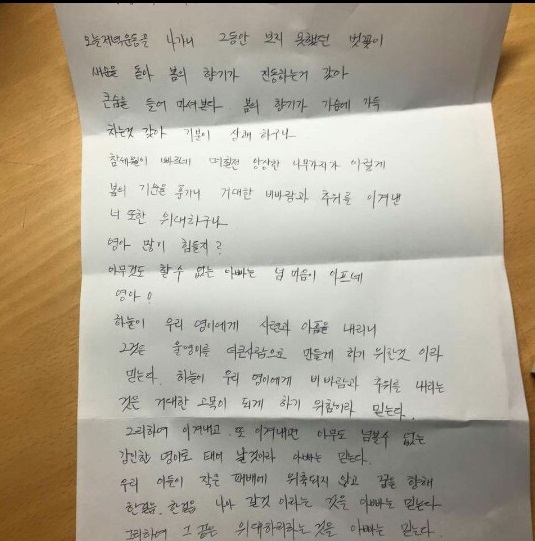 오늘저녁운동을 나가니 그동안 보지 못했던 벗꽃이
새순을 돋아 봄의 향기가 진동하는거 같아
큰숨을 들어 마셔본다. 봄의 향기가 가슴에 가득
차는것 같아 기분이 상쾌 하구나
참세월이 빠르네 며칠전 앙상한 나무가지가 이렇게
봄의 기운을 풍기니 거대한 비바람과 추위를 이겨낸
너 또한 위대하구나
영아 많이 힘들지?
아무것도 할수 없는 아빠는 넘 마음이 아프네
영아!
하늘이 우리 영이에게 시련과 아픔을 내리니
그것은 울영이를 더큰사람으로 만들게 하기 위한것 이라
믿는다. 하늘이 우리 영이에게 비바람과 추위를 내리는
것은 거대한 고목이 되게 하기 위함이라 믿는다.
그리하여 이겨내고 또 이겨내면 아무도 넘볼수 없는
강인한 영이로 태어 날것이라 아빠는 믿는다.
우리 아들이 작은 패배에 위축되지 않고 꿈을 향해
한걸음, 한걸음 나아 갈것 이라는 것을 아빠는 믿는다
그리하여 그 꿈은 위대하리라는 것을 아빠는 믿는다.